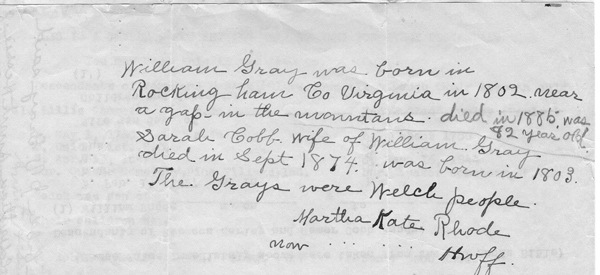 William Gray was born in
Rocking ham Co Virginia in 1802. near
a gap in the mountans. died in 1885. was
82 year old.
Sarah Cobb. wife of William Gray
died in Sept 1874. was born in 1803.
The Grays were Welch people.
Martha Kate Rhode
now ........ Hoff.